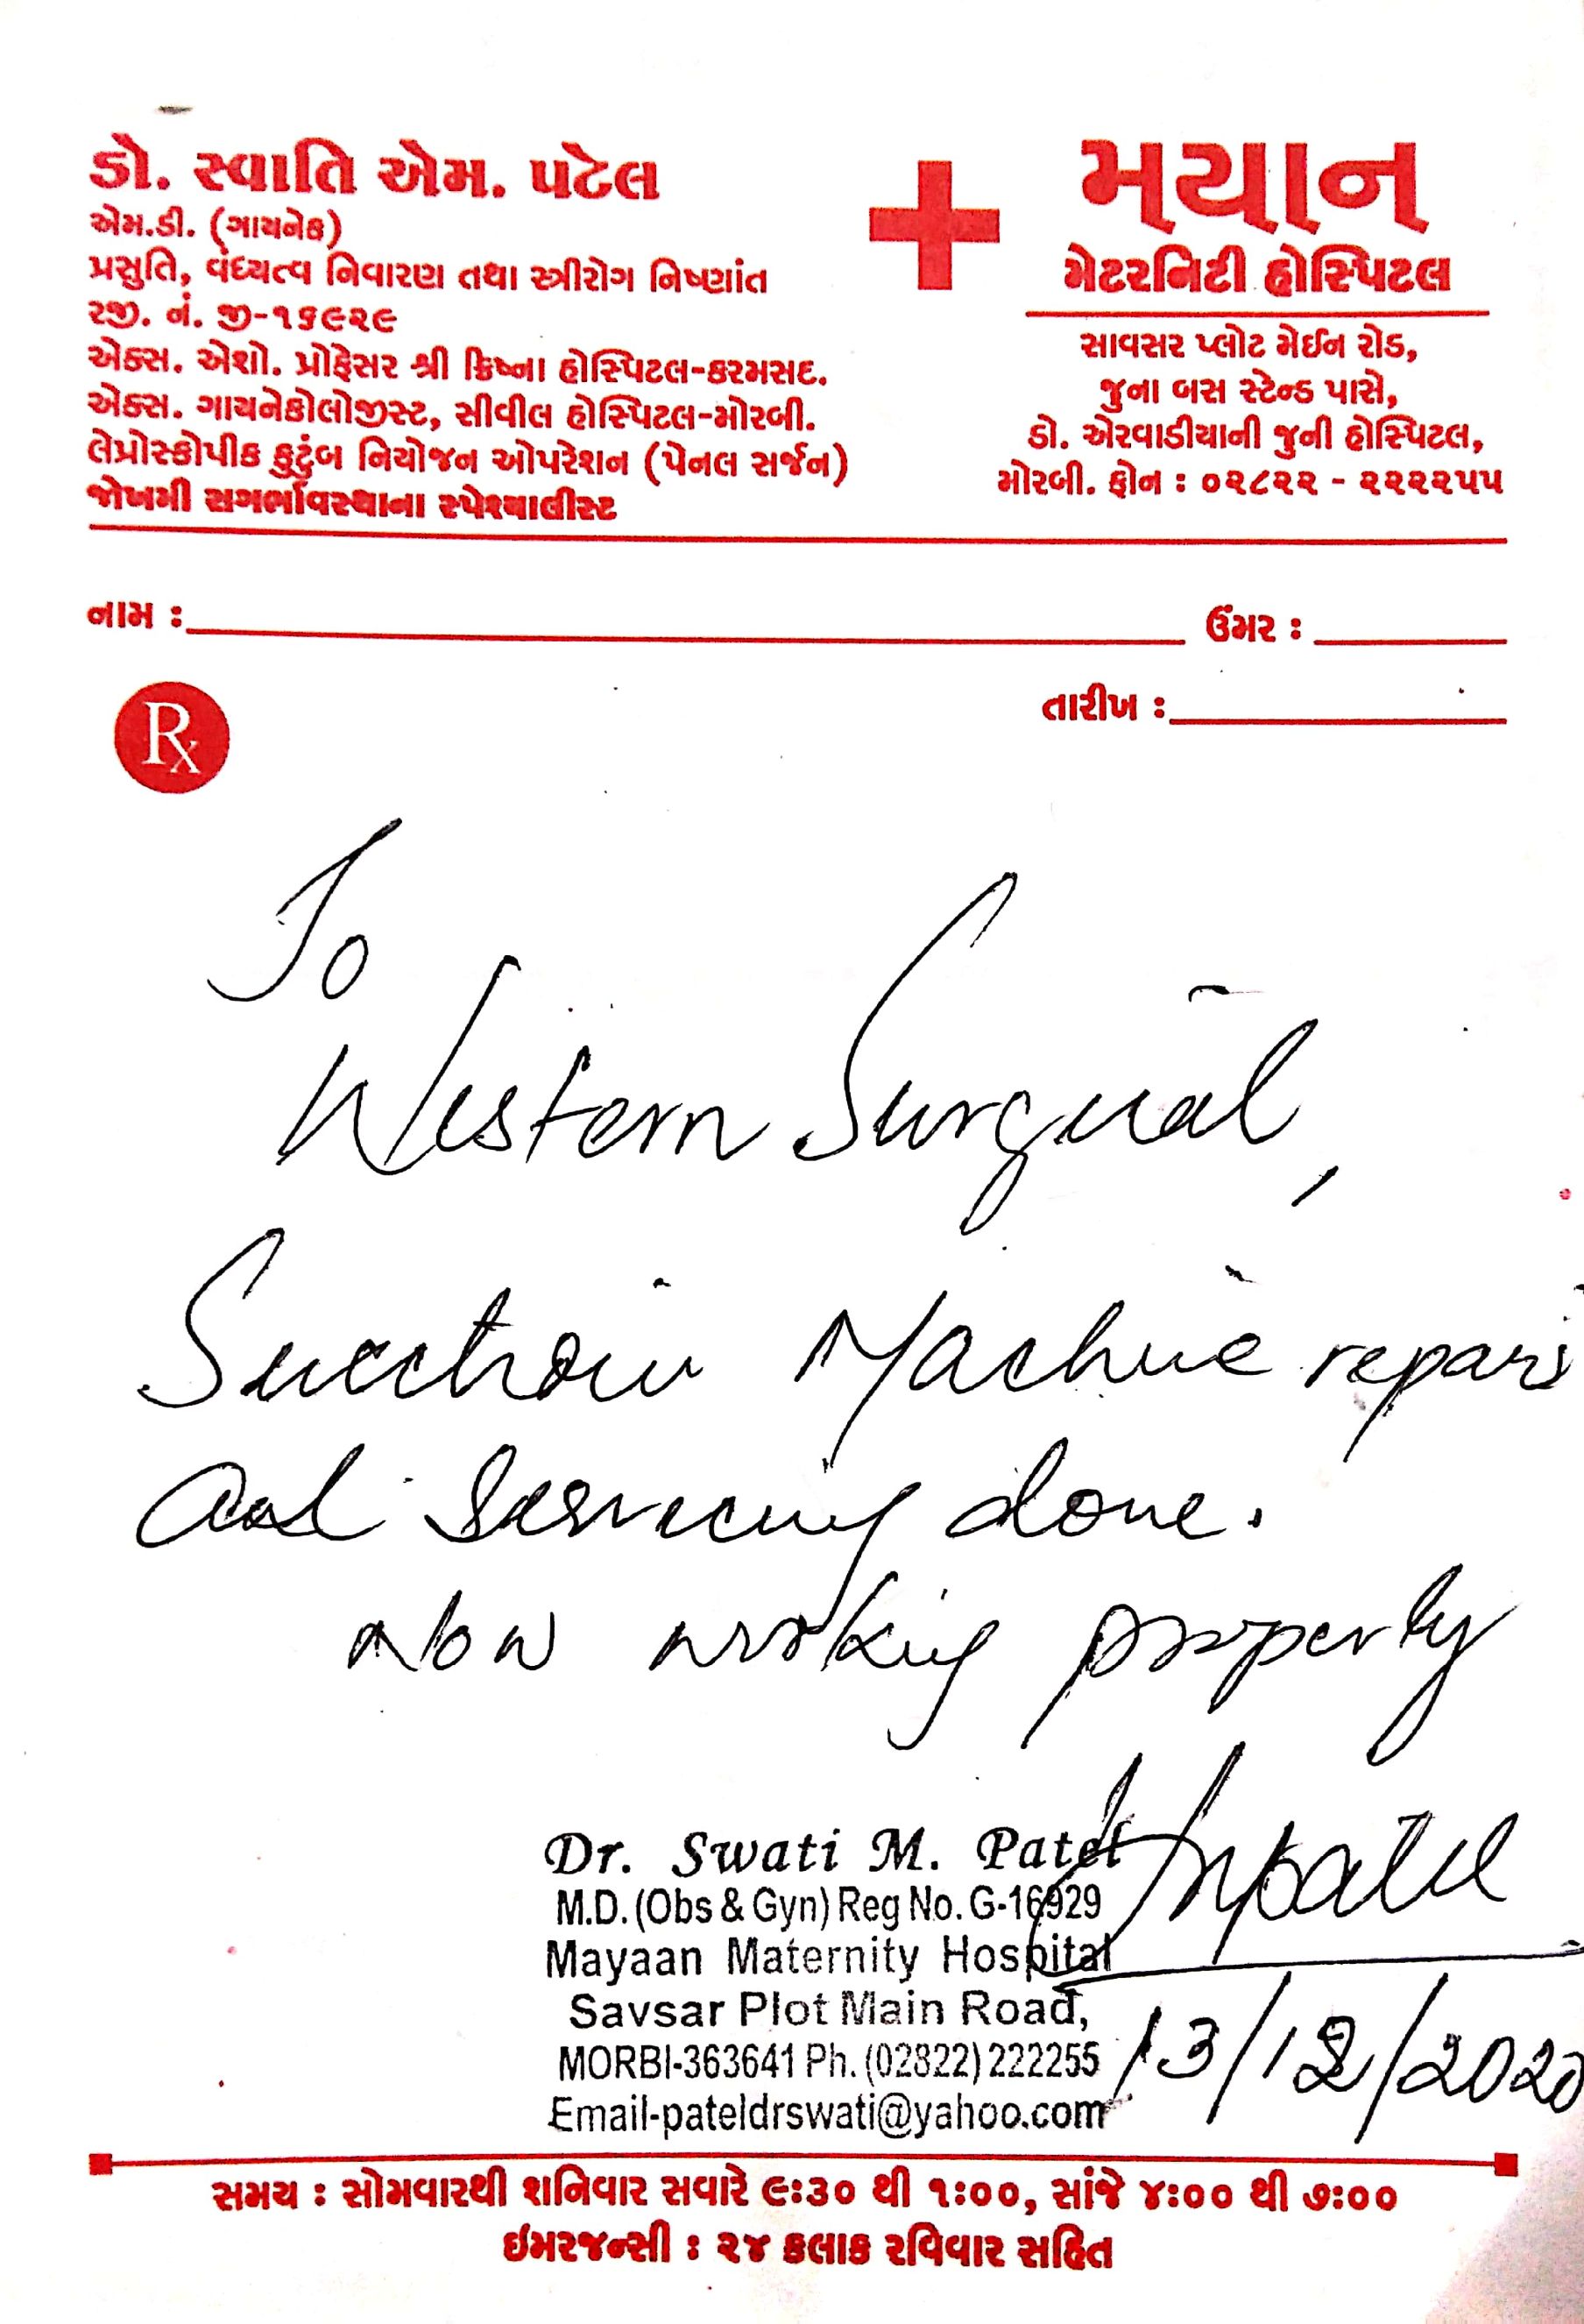 ડો. સ્વાતિ એમ. પટેલ
એમ.ડી. (ગાયનેક)
પ્રસુતિ, વંધ્યત્વ નિવારણ તથા સ્ત્રીરોગ નિષ્ણાંત
રજી. નં. જી-૧૬૯૨૯
એક્સ. એશો. પ્રોફેસર શ્રી ક્રિષ્ના હોસ્પિટલ-કરમસદ.
એક્સ. ગાયનેકોલોજીસ્ટ, સીવીલ હોસ્પિટલ-મોરબી.
લેપ્રોસ્કોપીક કુટુંબ નિયોજન ઓપરેશન (પેનલ સર્જન)
જોખમી સગર્ભાવસ્થાના સ્પેશ્યાલીસ્ટ
મયાન
મેટરનિટી હોસ્પિટલ
સાવસર પ્લોટ મેઈન રોડ,
જુના બસ સ્ટેન્ડ પાસે,
ડો. એરવાડીયાની જુની હોસ્પિટલ,
મોરબી. ફોન : ૦૨૮૨૨ - ૨૨૨૨૫૫
નામ :
ઉંમર :
તારીખ :
Rx
To
Western Surgical,
Sucction Machine repairs
and servicing done.
Now working properly
Dr. Swati M. Patel
M.D. (Obs & Gyn) Reg No. G-16929
Mayaan Maternity Hospital
Savsar Plot Main Road,
MORBI-363641 Ph. (02822) 222255
Email-pateldrswati@yahoo.com
13/12/2020
સમય : સોમવારથી શનિવાર સવારે ૯:૩૦ થી ૧:૦૦, સાંજે ૪:૦૦ થી ૭:૦૦
ઇમરજન્સી : ૨૪ કલાક રવિવાર સહિત